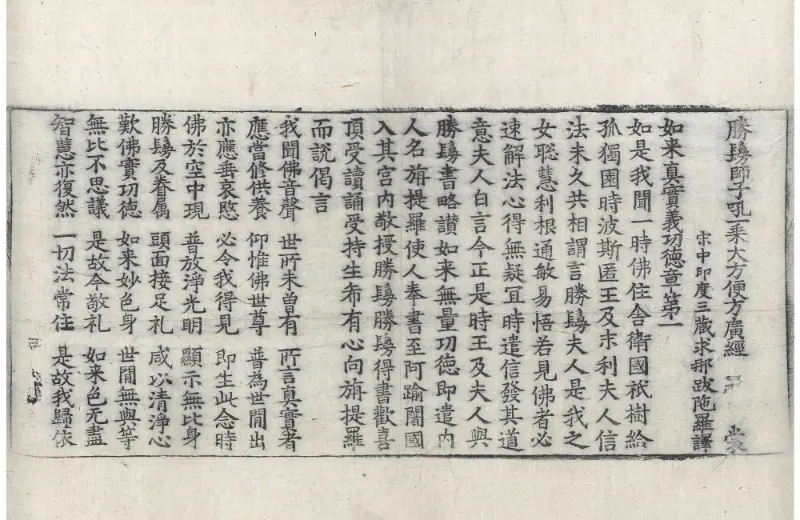 勝鬘師子吼一乗大方便方廣經
宋中印度三蔵求那跋陀羅譯
如来真實義功德章第一
如是我聞一時佛住舎衛國祇樹給
孤獨園時波斯匿王及末利夫人信
法未久共相謂言勝鬘夫人是我之
女聡慧利根通敏易悟若見佛者必
速解法心得無疑冝時遣信發其道
意夫人白言今正是時王及夫人與
勝鬘書略讃如来無量功德即遣内
人名旃提羅使人奉書至阿踰闍國
入其宮内敬授勝鬘勝鬘得書歡喜
頂受讀誦受持生希有心向旃提羅
而說偈言
我聞佛音聲 世所未曽有 所言真實者
應當修供養 仰惟佛世尊 普為世間出
亦應垂哀愍 必令我得見 即生此念時
佛於空中現 普放淨光明 顯示無比身
勝鬘及眷属 頭面接足礼 咸以清淨心
歎佛實功德 如来妙色身 世間無與等
無比不思議 是故今敬礼 如来色无盡
智慧亦復然 一切法常住 是故我歸依